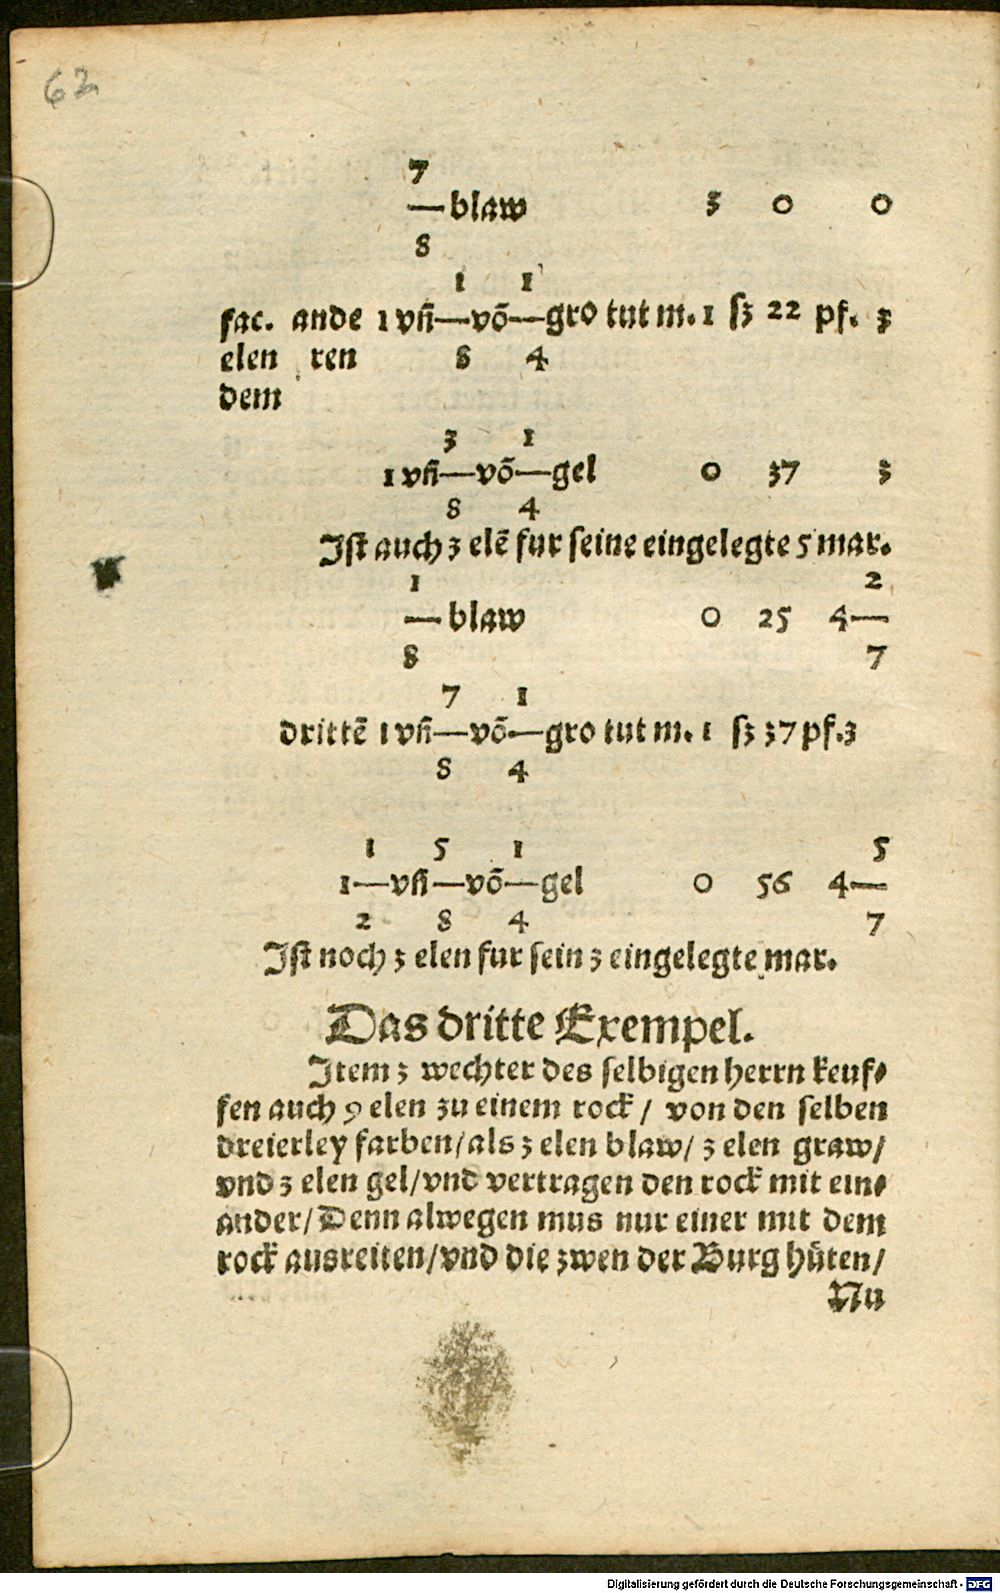 62
7
— blaw 3 0 0
8
1 1
fac. ande 1 vñ—võ—gro tut m. 1 ſz 22 pf. 3
elen ren 8 4
dem
3 1
1 vñ—võ—gel 0 37 3
8 4
Iſt auch 3 elē fur ſeine eingelegte 5 mar.
1 2
— blaw 0 25 4—
8 7
7 1
drittē 1 vñ—võ—gro tut m. 1 ſz 37 pf. 3
8 4
1 5 1 5
1—vñ—võ—gel 0 56 4—
2 8 4 7
Iſt noch 3 elen fur ſein 3 eingelegte mar.
Das dritte Exempel.
Item 3 wechter des ſelbigen herrn keuf⸗
fen auch 9 elen zu einem rock / von den ſelben
dreierley farben/als 3 elen blaw/ 3 elen graw/
vnd 3 elen gel/vnd vertragen den rock mit ein⸗
ander/Denn alwegen mus nur einer mit dem
rock ausreiten/vnd die zwen der Burg hüten/
Nu
Digitalisierung gefördert durch die Deutsche Forschungsgemeinschaft - DFG